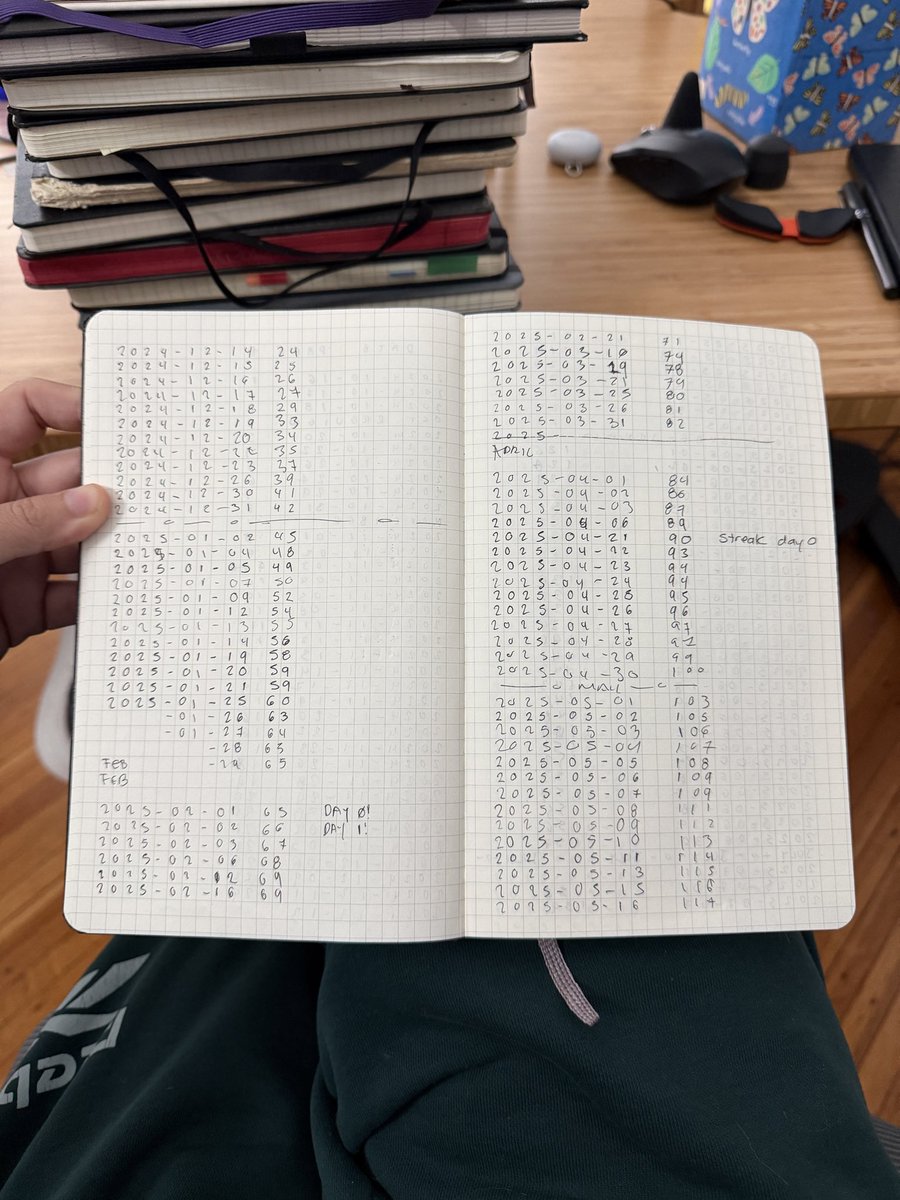 2024-12-14 24
2024-12-15 25
2024-12-16 26
2024-12-17 27
2024-12-18 29
2024-12-19 33
2024-12-20 34
2024-12-22 35
2024-12-23 37
2024-12-26 39
2024-12-30 41
2024-12-31 42
2025-01-02 45
2025-01-04 48
2025-01-05 49
2025-01-07 50
2025-01-09 52
2025-01-12 54
2025-01-13 55
2025-01-14 56
2025-01-19 58
2025-01-20 59
2025-01-21 59
2025-01-25 60
-01-26 63
-01-27 64
-28 65
-29 65
FEB
FEB
2025-02-01 65 DAY 0!
2025-02-02 66 DAY 1!
2025-02-03 67
2025-02-06 68
2025-02-12 69
2025-02-16 69
2025-02-21 71
2025-03-10 74
2025-03-19 78
2025-03-21 79
2025-03-25 80
2025-03-26 81
2025-03-31 82
2025
APRIL
2025-04-01 84
2025-04-02 86
2025-04-03 87
2025-04-06 89
2025-04-21 90 streak day 0
2025-04-22 93
2025-04-23 94
2025-04-24 94
2025-04-25 95
2025-04-26 96
2025-04-27 97
2025-04-28 97
2025-04-29 99
2025-04-30 100
MAY
2025-05-01 103
2025-05-02 105
2025-05-03 106
2025-05-04 107
2025-05-05 108
2025-05-06 109
2025-05-07 109
2025-05-08 111
2025-05-09 112
2025-05-10 113
2025-05-11 114
2025-05-13 115
2025-05-15 116
2025-05-16 117